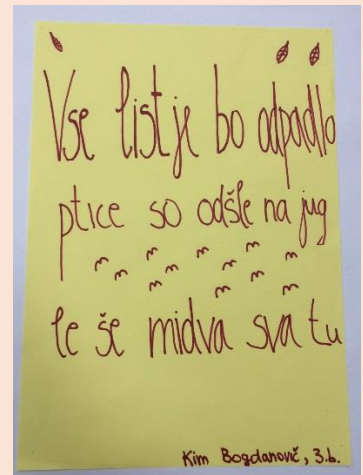 Vse listje bo odpadlo
ptice so odšle na jug
le še midva sva tu
Kim Bogdanovič, 3.b.